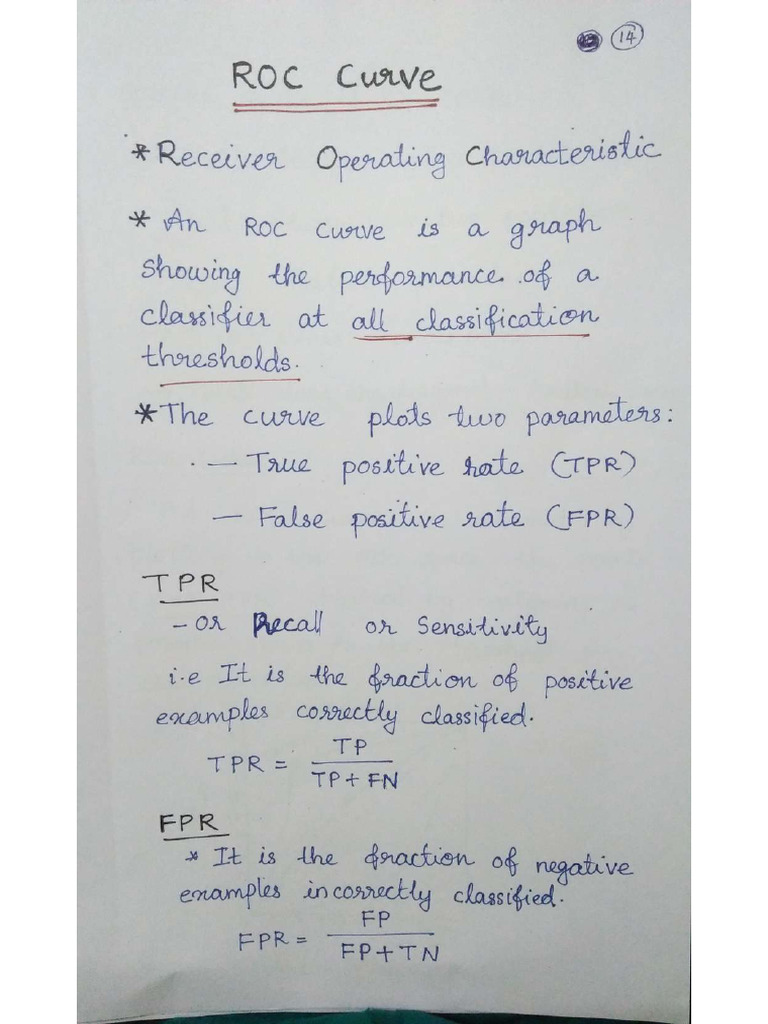 14
ROC Curve
* Receiver Operating Characteristic
* An ROC curve is a graph
showing the performance of a
classifier at all classification
thresholds.
* The curve plots two parameters:
— True positive rate (TPR)
— False positive rate (FPR)
TPR
- or Recall or Sensitivity
i.e It is the fraction of positive
examples correctly classified.
TPR = TP / TP + FN
FPR
* It is the fraction of negative
examples incorrectly classified.
FPR = FP / FP + TN